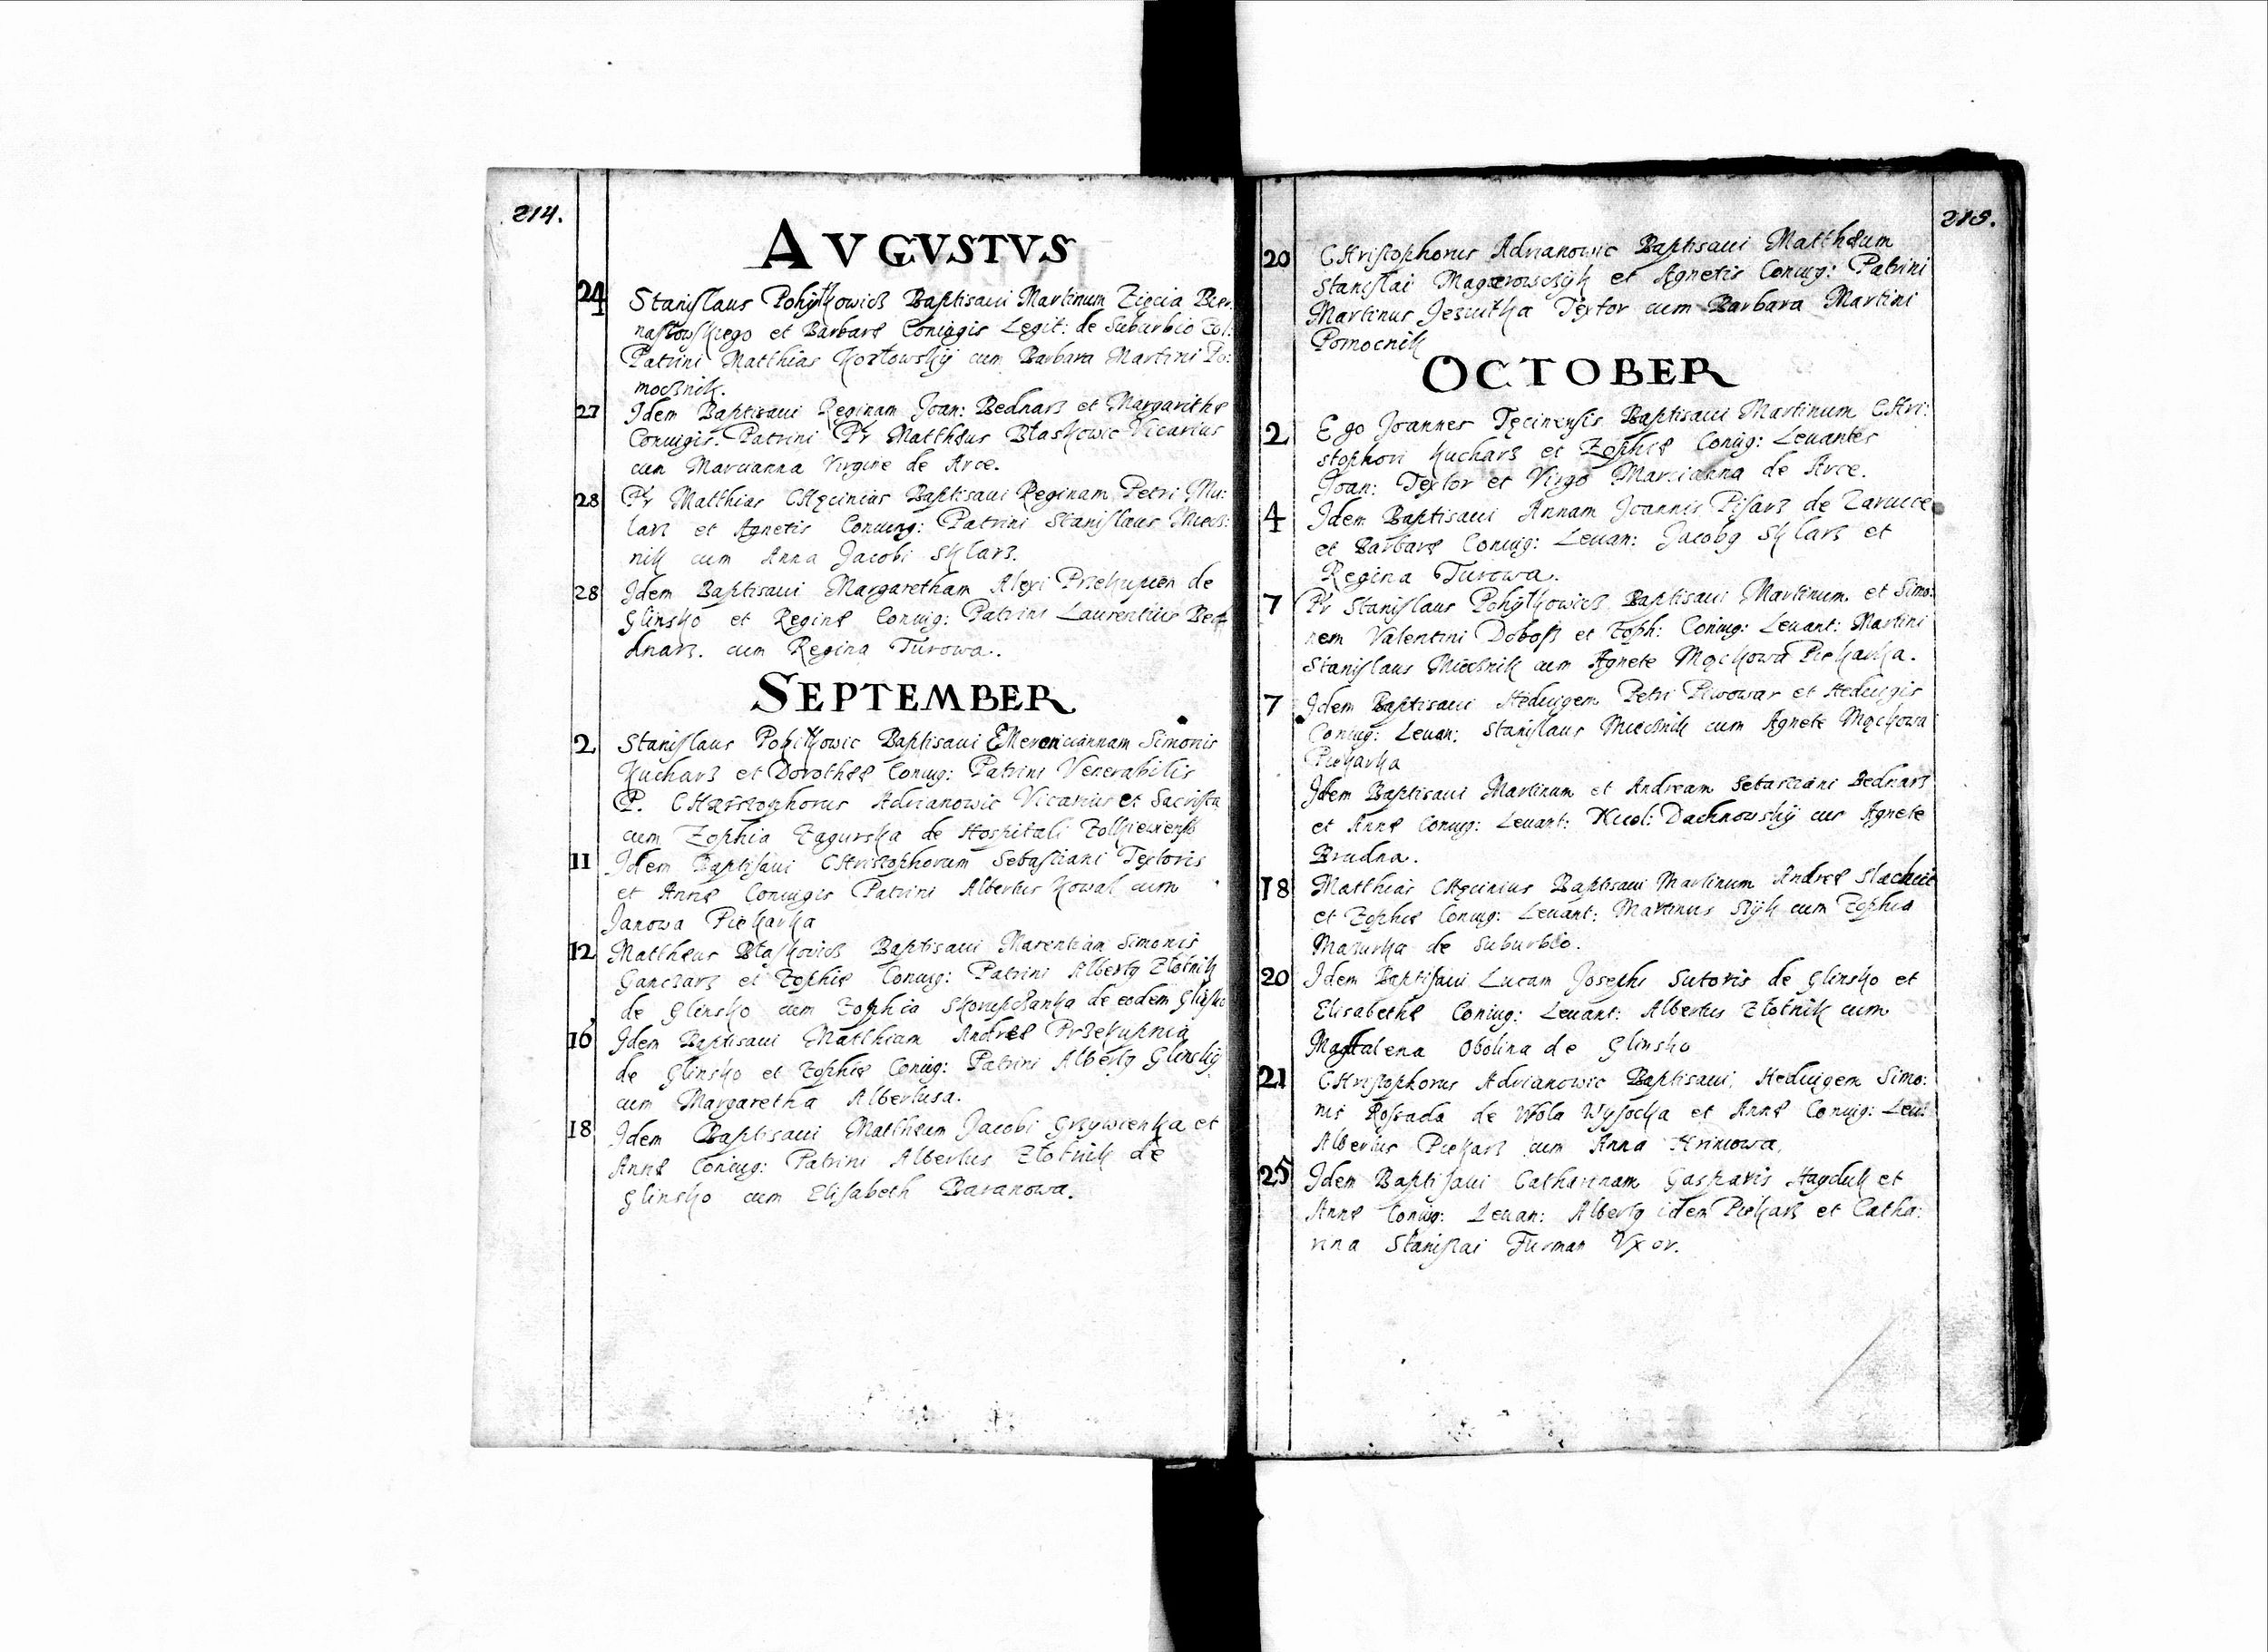 214.
AVGVSTVS
24 Stanislaus Pohytkowicz Baptisaui Martinum Zięcia Ber:
nastowskiego et Barbarę Coniugis Legit: de Suburbio Zol:
Patrini Matthias Kozłowskÿ cum Barbara Martini Po:
mocznik.
27 Idem Baptisaui Reginam Joan: Bednarz et Margarithę
Coniugis. Patrini Pr Matthæus Błaskowic Vicarius
cum Marcianna Virgine de Arce.
28 Pr Matthias CHęcinius Baptisaui Reginam Petri Mu:
larz et Agnetis Coniug: Patrini Stanislaus Miecz:
nik cum Anna Jacobi Sklarz.
28 Idem Baptisaui Margaretham Alexi Przekupien de
Glinsko et Reginę Coniug: Patrini Laurentius Bed
dnarz. cum Regina Turowa.
SEPTEMBER
2 Stanislaus Pohitkowic Baptisaui EMerenciannam Simonis
Kucharz et Dorotheę Coniug: Patrini Venerabilis
P. CHristophorus Adrianowic Vicarius et Sacrista
cum Zophia Zagurska de Hospitali Zolkiewiensi
11 Idem Baptisaui CHristophorum Sebastiani Textoris
et Annę Coniugis Patrini Albertus Kowal cum
Janowa Piekarka
12 Mattheus Błaskowicz Baptisaui Marentiam Simonis
Ganczarz et Zophię Coniug: Patrini Albertg Złotnik
de Glinsko cum Zophia Skorupczanka de eodem Glinsko
16 Idem Baptisaui Matthiam Andreę Przekupnia
de Glinsko et Zophię Coniug: Patrini Albertg Glinskÿ
cum Margaretha Albertusa.
18 Idem Baptisaui Mattheum Jacobi Grzywienka et
Annę Coniug: Patrini Albertus Złotnik de
Glinsko cum Elisabeth Baranowa.
215.
20 CHristophorus Adrianowic Baptisaui Matthęum
Stanislai Magierowsczÿk et Agnetis Coniug: Patrini
Martinus Jezuitka Textor cum Barbara Martini
Pomocnik
OCTOBER
2 Ego Joannes Tęcinensis Baptisaui Martinum CHri:
stophori Kucharz et Zophię Coniug: Leuantes
Joan: Textor et Virgo Marcianna de Arce.
4 Idem Baptisaui Annam Joannis Pisarz de Zarucce
et Barbarę Coniug: Leuan: Jacobg Sklarz et
Regina Turowa.
7 Pr Stanislaus Pohÿtkowicz Baptisaui Martinum et Simo:
nem Valentini Dobosz et Zoph: Coniug: Leuant: Martini
Stanislaus Miecznik cum Agnete Mąckowa Piekarka.
7 Idem Baptisaui Heduigem Petri Piwowar et Heduigis
Coniug: Leuan: Stanislaus Miecznik cum Agnete Mąckowa
Piekarka
Idem Baptisaui Martinum et Andream Sebastiani Bednarz
et Annę Coniug: Leuant: Nicol: Dachnowskÿ cum Agnete
Brudna.
18 Matthias CHęcinius Baptisaui Martinum Andreę
et Zophię Coniug: Leuant: Martinus cum Zophia
Mazurka de Suburbio.
20 Idem Baptisaui Lucam Josephi Sutoris de Glinsko et
Elisabethę Coniug: Leuant: Albertus Złotnik cum
Magdalena Obolina de Glinsko
21 CHristophorus Adrianowic Baptisaui Heduigem Simo:
nis Rosrada de Wola Wysocka et Annę Coniug: Leu:
Albertus Piekarz cum Anna Hriniowa.
25 Idem Baptisaui Catharinam Gasparis Hayduk et
Annę Coniug: Leuan: Albertg idem Piekarz et Catha:
rina Stanislai Furman Vxor.